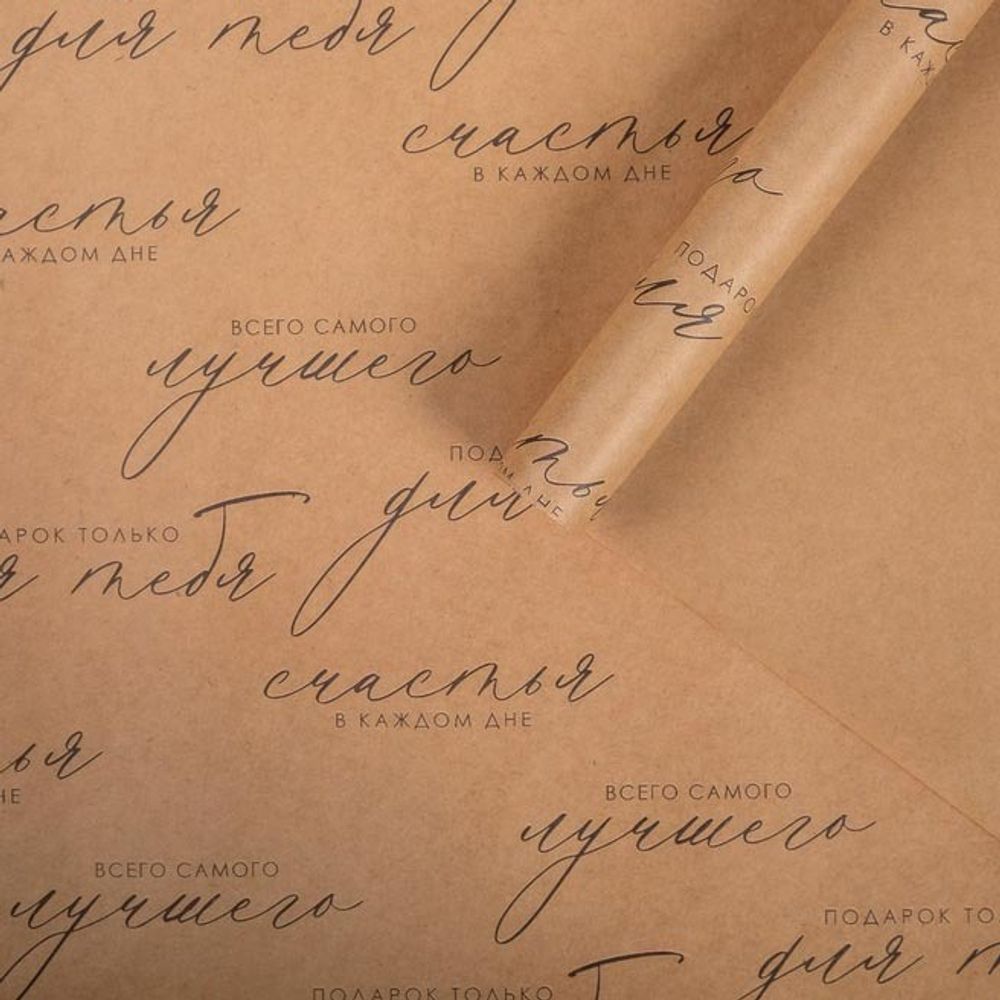 для тебя
счастья
В КАЖДОМ ДНЕ
АЖДОМ ДНЕ
В КАЖ
ПОДАРО
ля
ВСЕГО САМОГО
лучшего
ПОДА
для
АРОК ТОЛЬКО
я тебя
счастья
В КАЖДОМ ДНЕ
ья
НЕ
ВСЕГО САМОГО
лучшего
ВСЕГО САМОГО
лучшего
ПОДАРОК ТО
для т
ПОДАРОК ТОЛЬКО